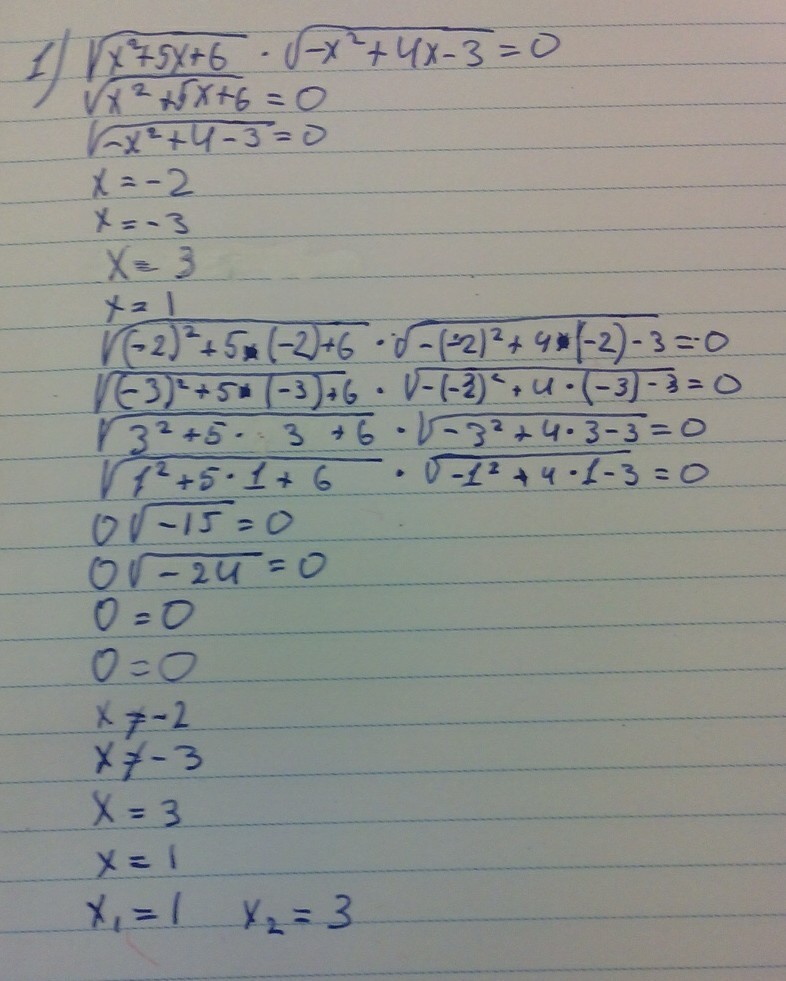 1) √x²+5x+6 · √-x²+4x-3 = 0
√x²+5x+6 = 0
√-x²+4-3 = 0
x = -2
x = -3
x = 3
x = 1
√(-2)²+5*(-2)+6 · √-(-2)²+4*(-2)-3 = 0
√(-3)²+5*(-3)+6 · √-(-3)²+4·(-3)-3 = 0
√3²+5·3+6 · √-3²+4·3-3 = 0
√1²+5·1+6 · √-1²+4·1-3 = 0
0√-15 = 0
0√-24 = 0
0 = 0
0 = 0
x ≠ -2
x ≠ -3
x = 3
x = 1
x₁ = 1 x₂ = 3